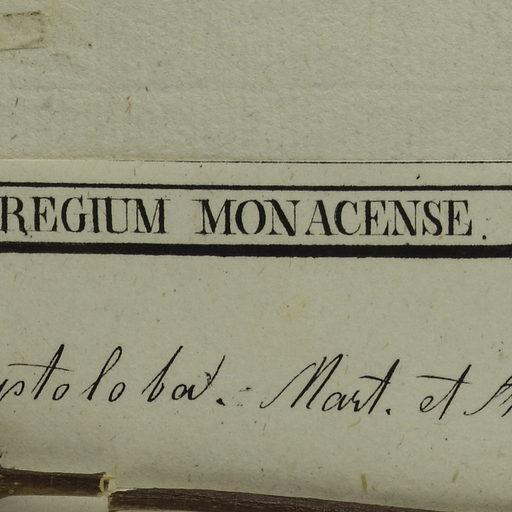 REGIUM MONACENSE.
ystoloba. Mart. et